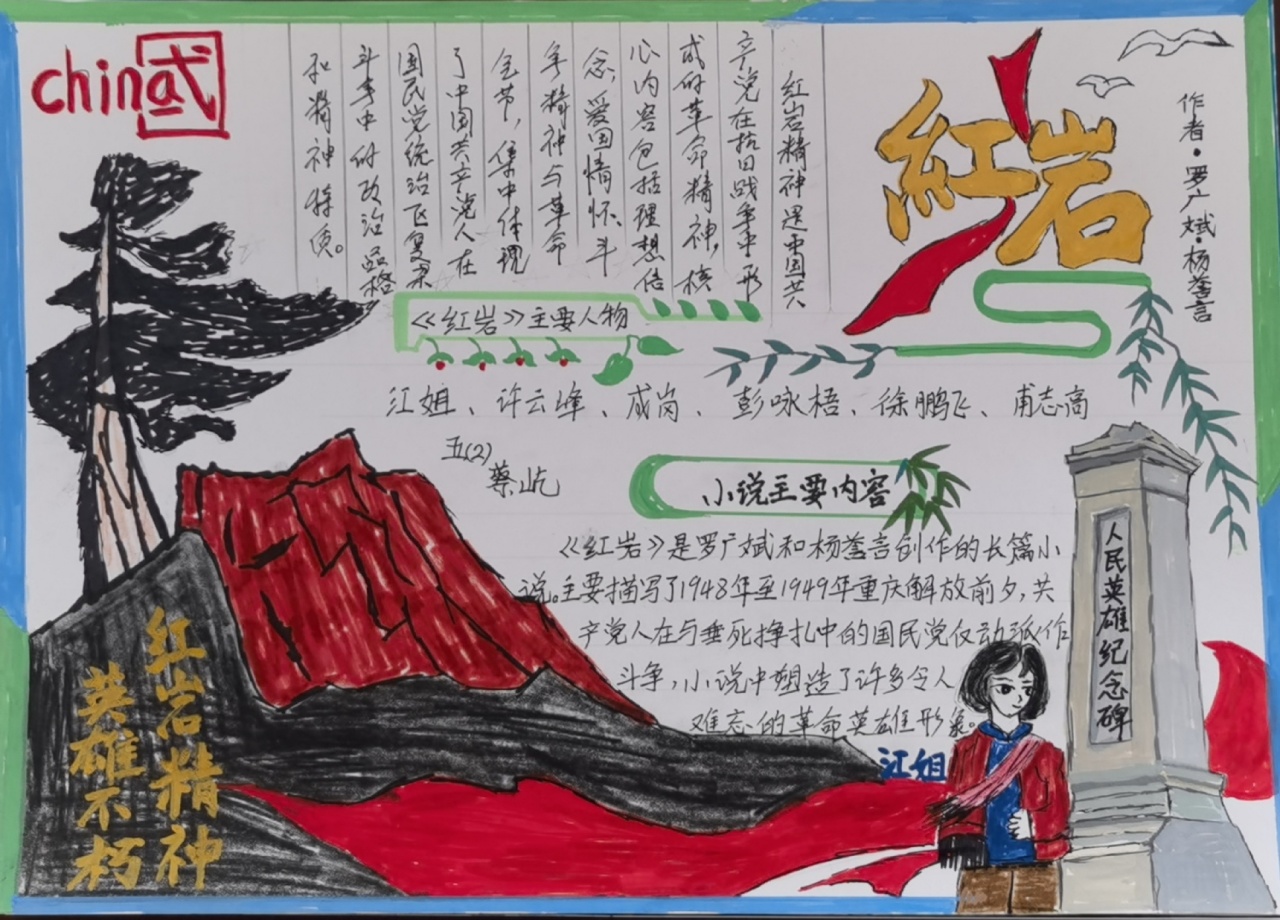 china
式
红岩
作者·罗广斌·杨益言
红岩精神是中国共
产党在抗日战争中形
成的革命精神,核
心内容包括理想信
念、爱国情怀、斗
争精神与革命
气节,集中体现
了中国共产党人在
国民党统治区复杂
斗争中的政治品格
和精神特质。
《红岩》主要人物
江姐、许云峰、成岗、彭咏梧、徐鹏飞、甫志高
五(2)
蔡屹
小说主要内容
《红岩》是罗广斌和杨益言创作的长篇小
说。主要描写了1948年至1949年重庆解放前夕,共
产党人在与垂死挣扎中的国民党反动派作
斗争,小说中塑造了许多令人
难忘的革命英雄形象。
江姐
人民英雄纪念碑
红岩精神
英雄不朽